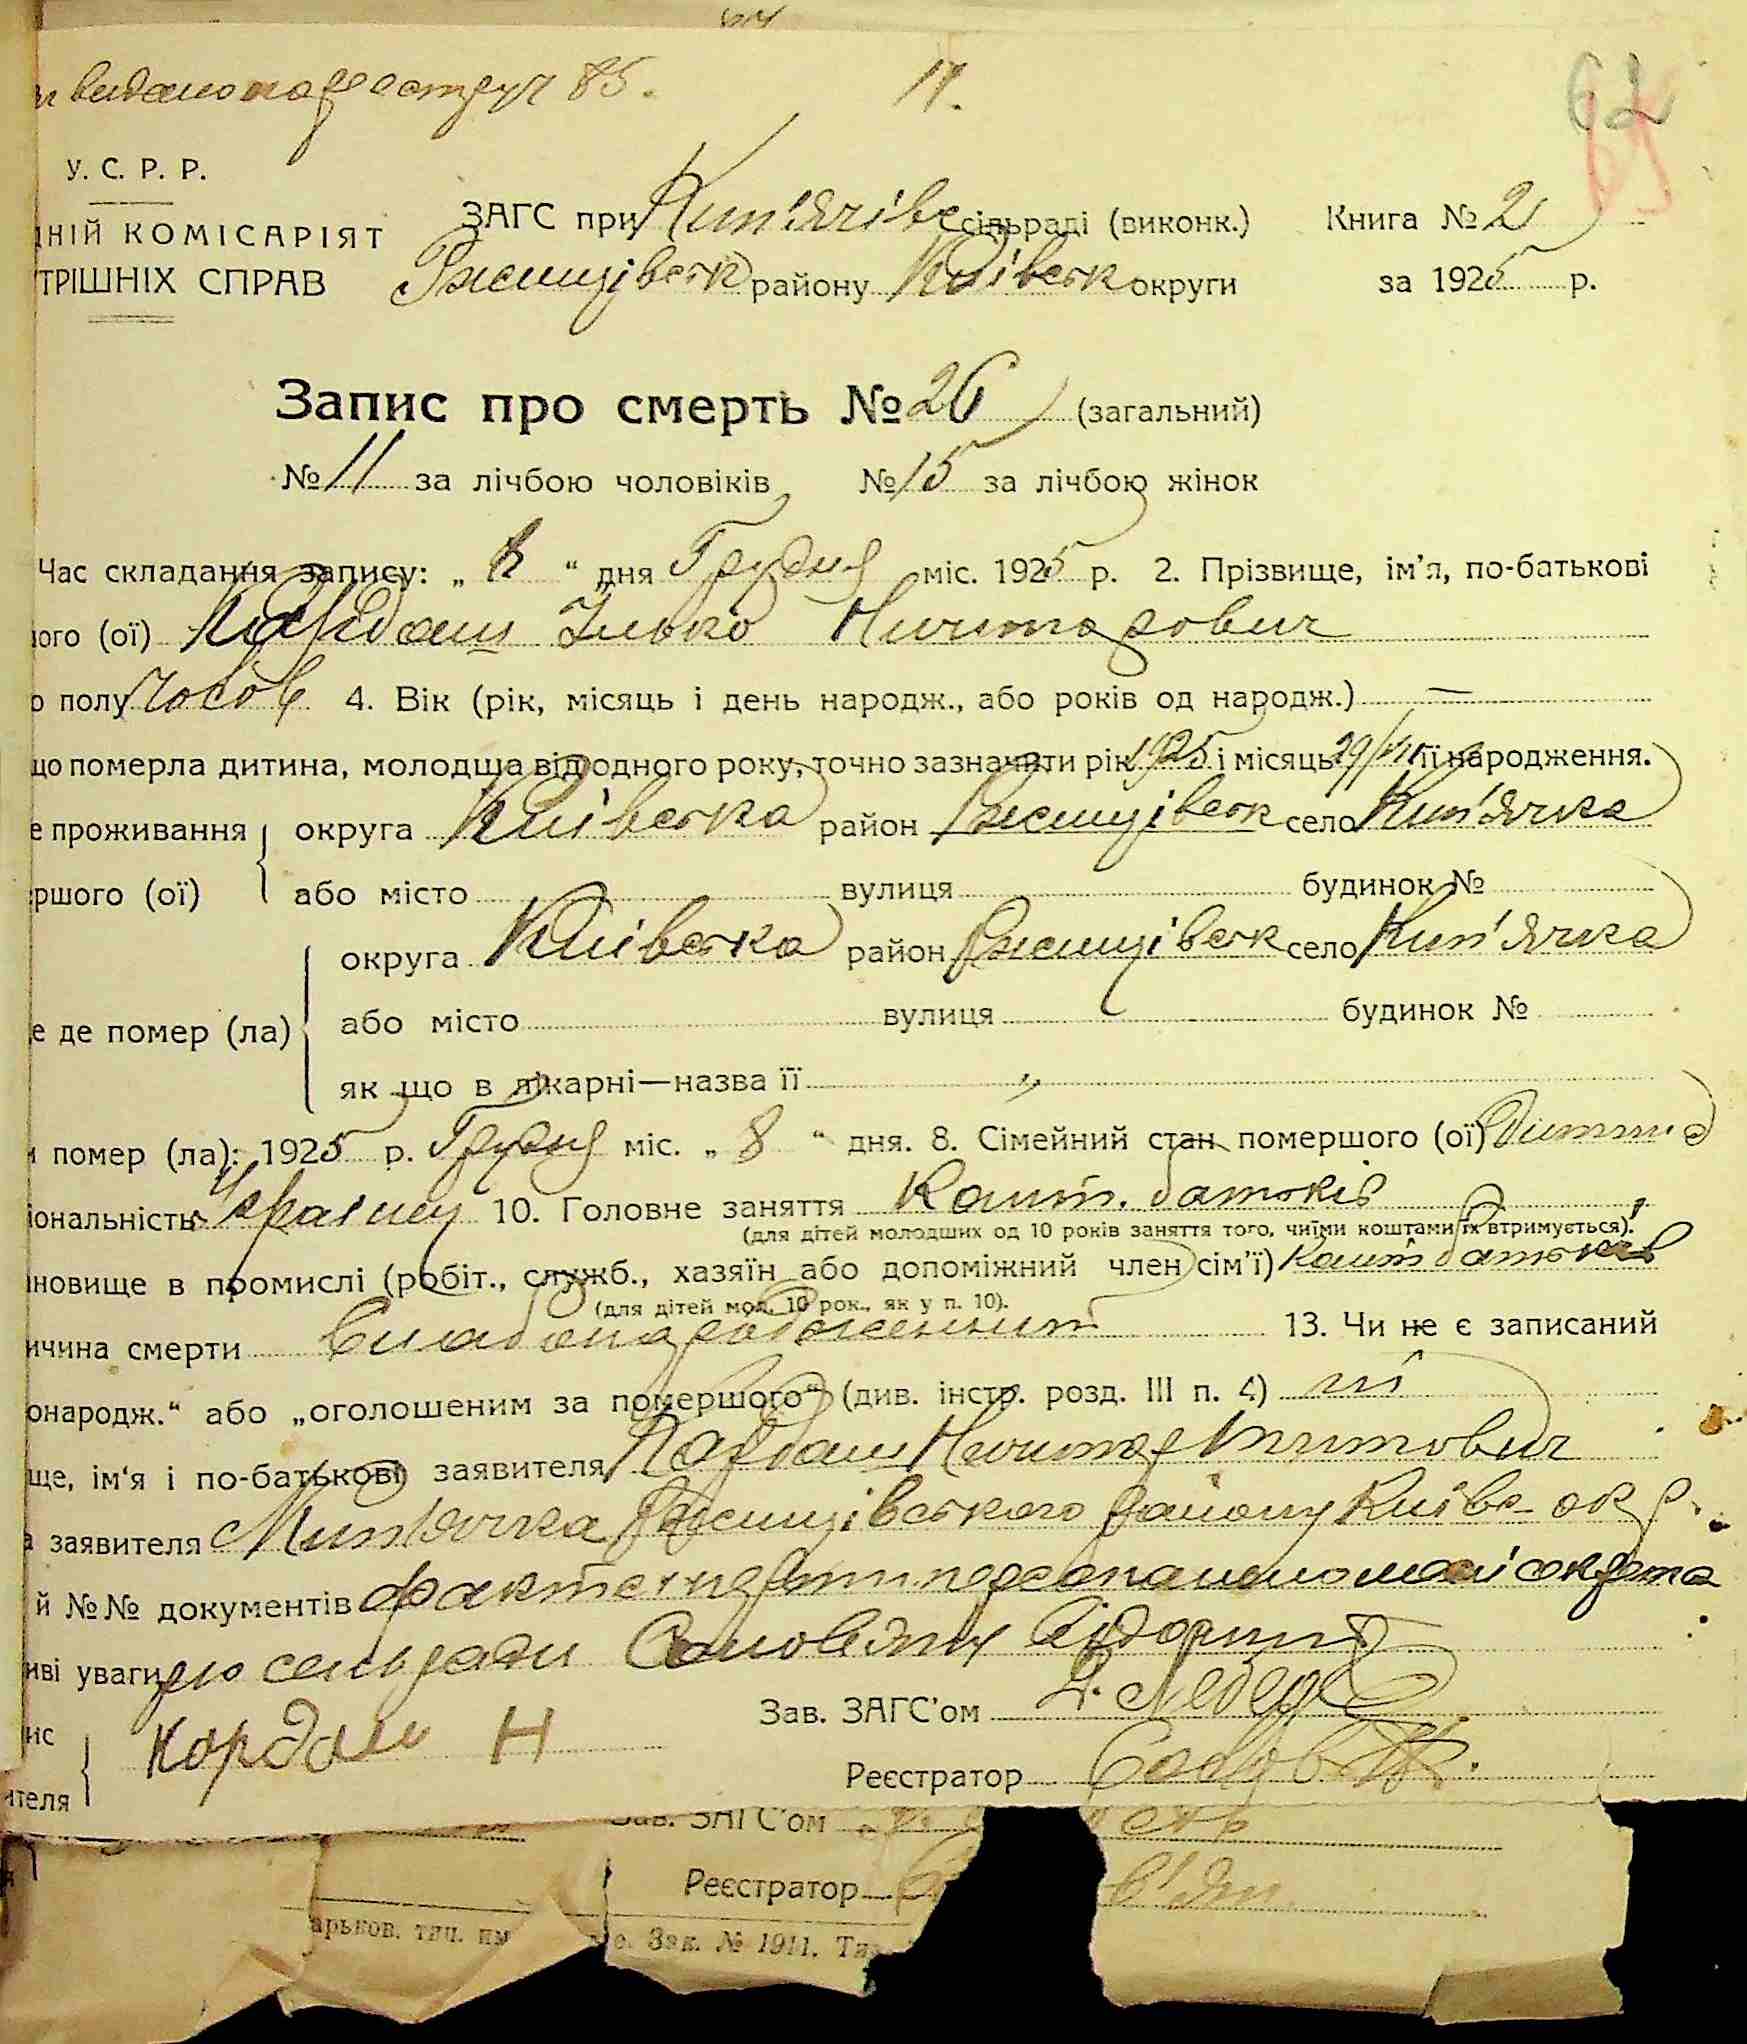 видано на реєстру 85. 17. 62
У. С. Р. Р.
ЗАГС при Кип'ячівс сільраді (виконк.) Книга № 2
НІЙ КОМІСАРІЯТ
Ржищівськ району Київськ округи за 1925 р.
ТРІШНІХ СПРАВ
Запис про смерть № 26 (загальний)
№ 11 за лічбою чоловіків № 15 за лічбою жінок
Час складання запису: „ “ дня Грудня міс. 1925 р. 2. Прізвище, ім'я, по-батькові
ого (ої) Кардаш Ілько Ничипорович
о полу чолов 4. Вік (рік, місяць і день народж., або років од народж.) —
що померла дитина, молодща від одного року, точно зазначити рік 1925 і місяць 29/ її народження.
е проживання округа Київська район Ржищівськ село Кип'ячка
ршого (ої) або місто вулиця будинок №
округа Київська район Ржищівськ село Кип'ячка
е де помер (ла) або місто вулиця будинок №
як що в лікарні—назва її „
и помер (ла): 1925 р. Грудня міс. „ 8 “ дня. 8. Сімейний стан помершого (ої) Дитина
іональність Українец 10. Головне заняття Кошт. батьків
(для дітей молодших од 10 років заняття того, чиїми коштами їх втримується).
новище в промислі (робіт., служб., хазяїн або допоміжний член сім'ї) кошт батьків
(для дітей мол. 10 рок., як у п. 10).
ичина смерти 13. Чи не є записаний
онародж.“ або „оголошеним за помершого“ (див. інстр. розд. III п. 4) ні
ще, ім'я і по-батькові заявителя Кардаш Ничипор
а заявителя Кип'ячка Ржищівського району Київс- окр.
й №№ документів факт смерти
иві уваги сільради
Зав. ЗАГС'ом
ис Кордаш Н
Реєстратор
ителя
Зав. ЗАГС'ом
Реєстратор
арьков. тип. Зак. № 1911. Ти